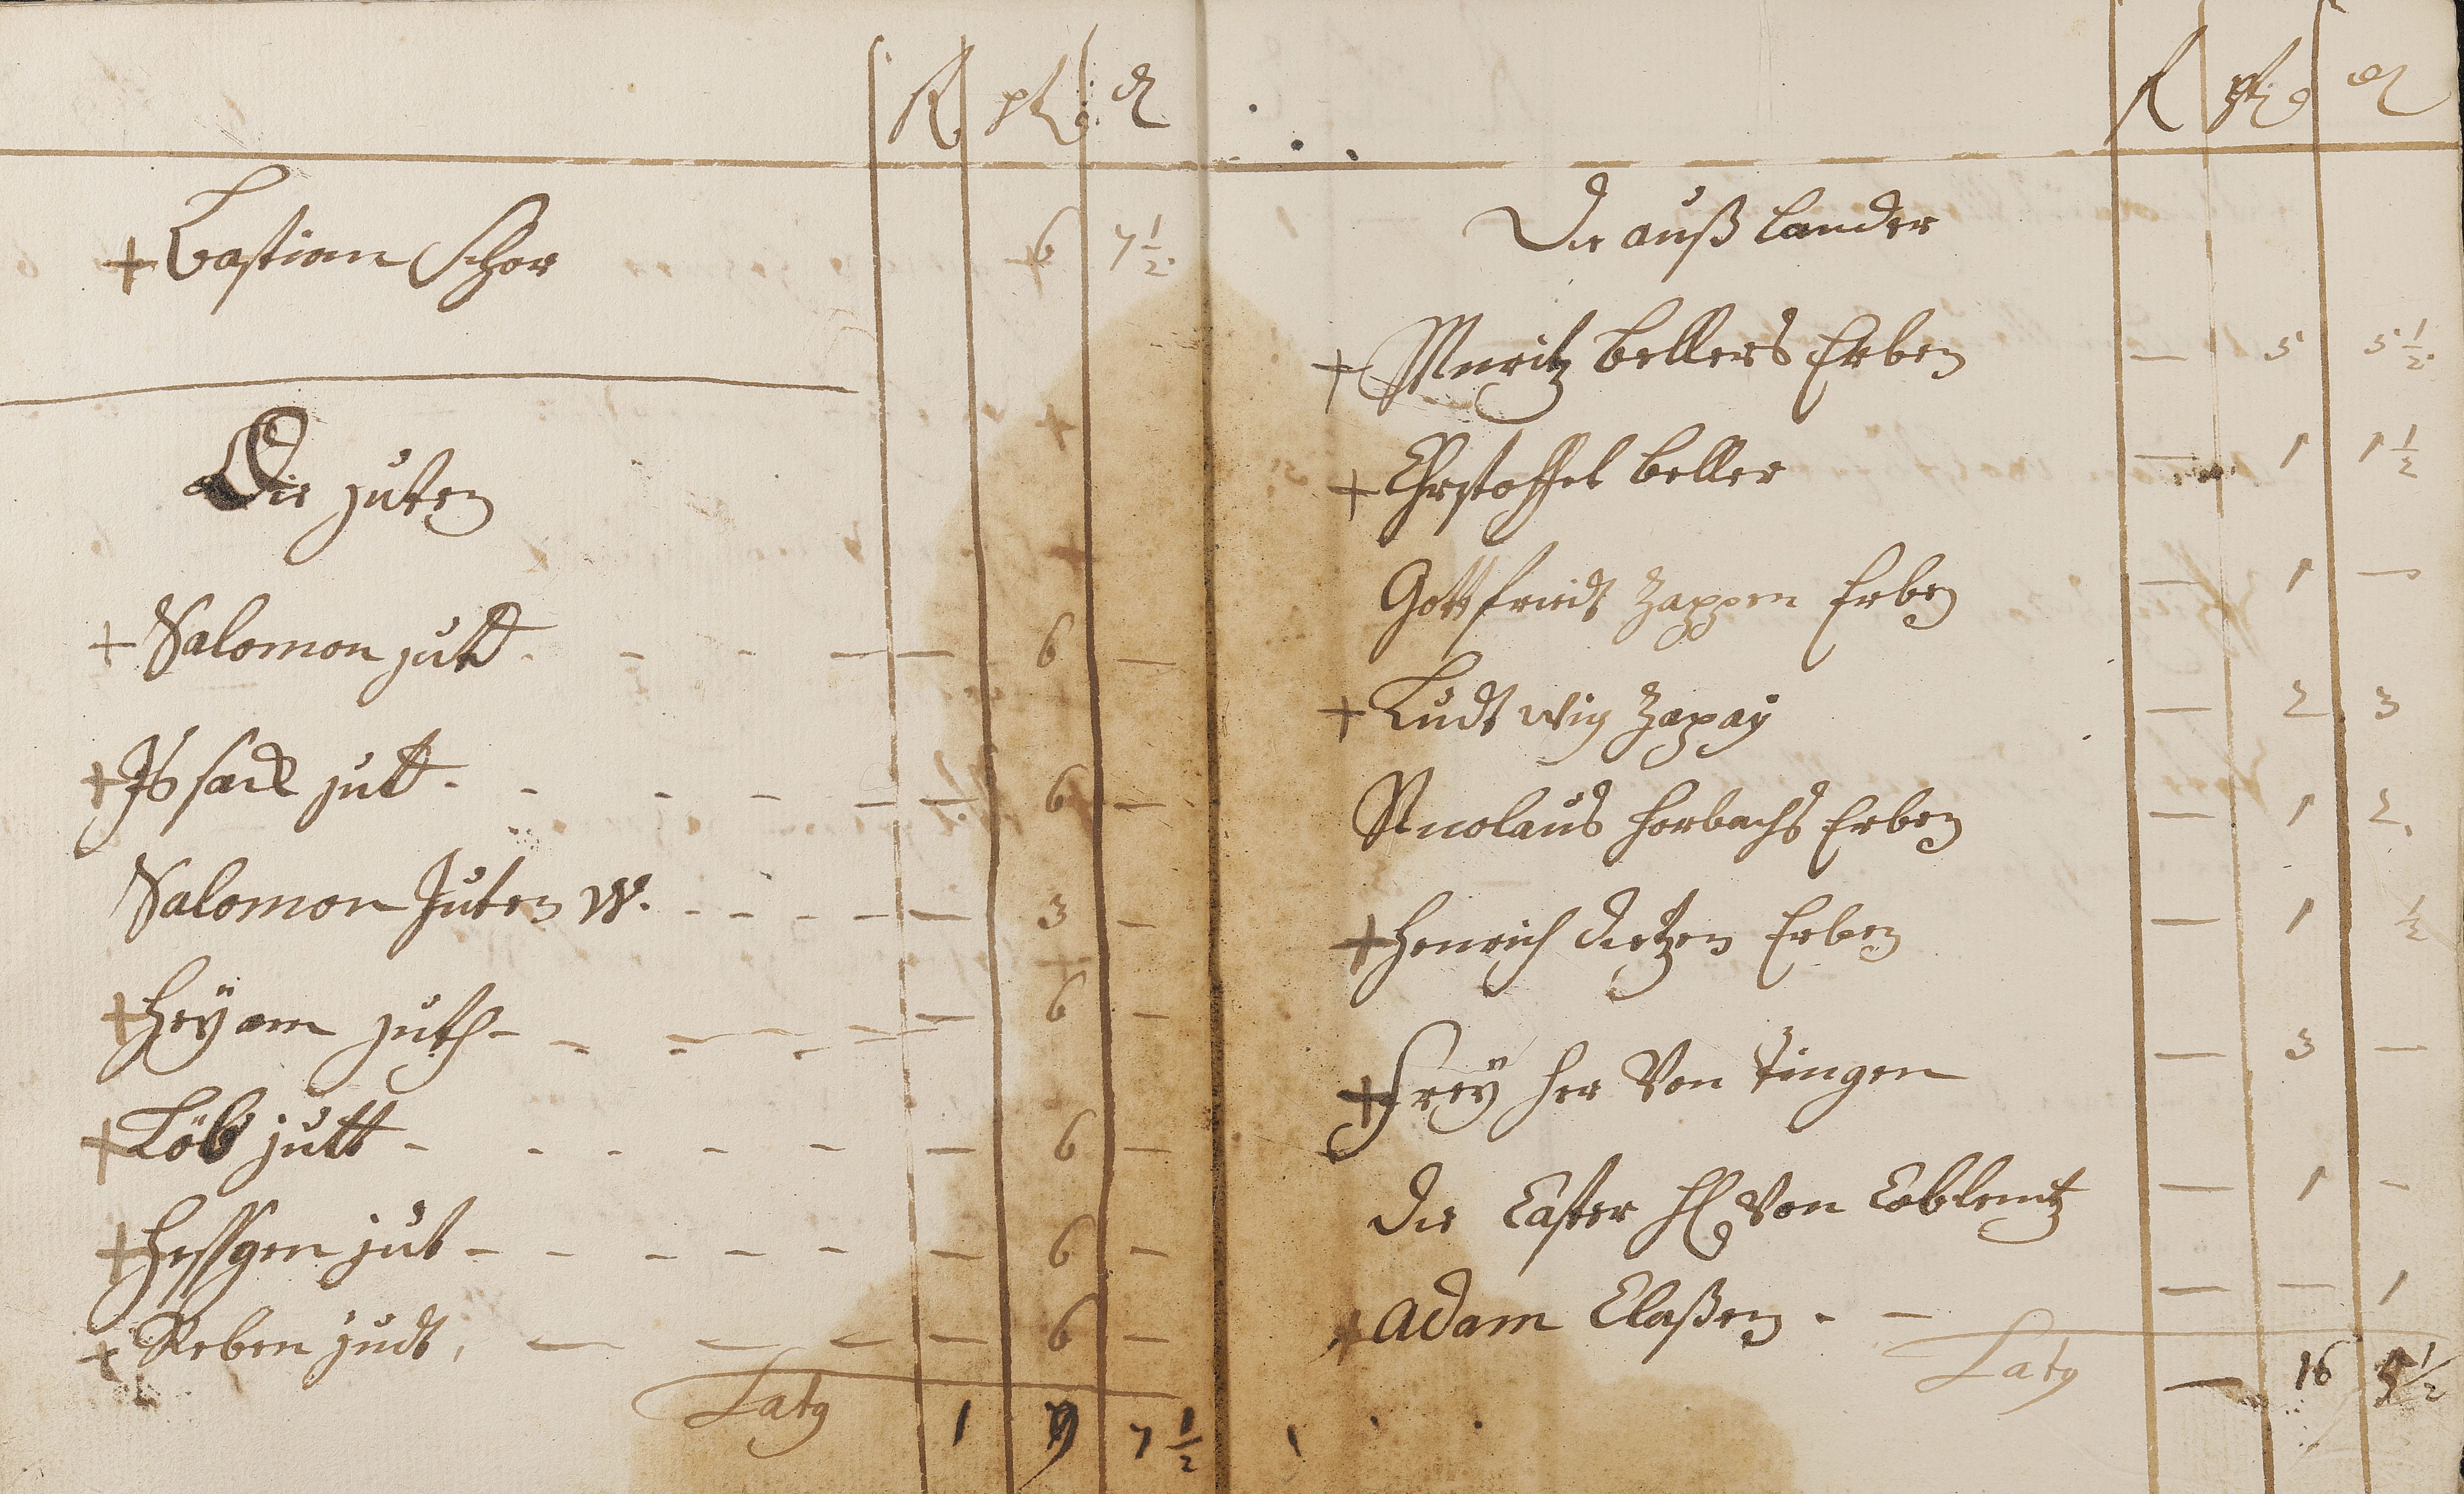 + Bastian Schor 6 7 1/2
Die juten
+ Salomon jutt - - - - 6 -
+ Issack jutt - - - - 6 -
Salomon Juten W. - - - - 3 -
+ Heÿam juth - - - - 6 -
+ Löb jutt - - - - 6 -
+ Hessgen jut - - - - 6 -
+ Reben judt, - - - - 6 -
Lat9 1 9 7 1/2
Die auß lander
+ Muritz bellers Erben - 5 5 1/2
+ Chrstoffel beller - 1 1 1/2
Gottfriedt Zappen Erben - 1 -
+ Ludtwig Zapaÿ - 2 3
Nicolaus Horbachs Erben - 1 2
+ Henrich dietzen Erben - 1 1/2
+ Freÿ her Von Tingen - 3 -
die Caster H Von Coblentz - 1 -
+ Adam Claßen - - - - 1
Lat9 - 16 1/2